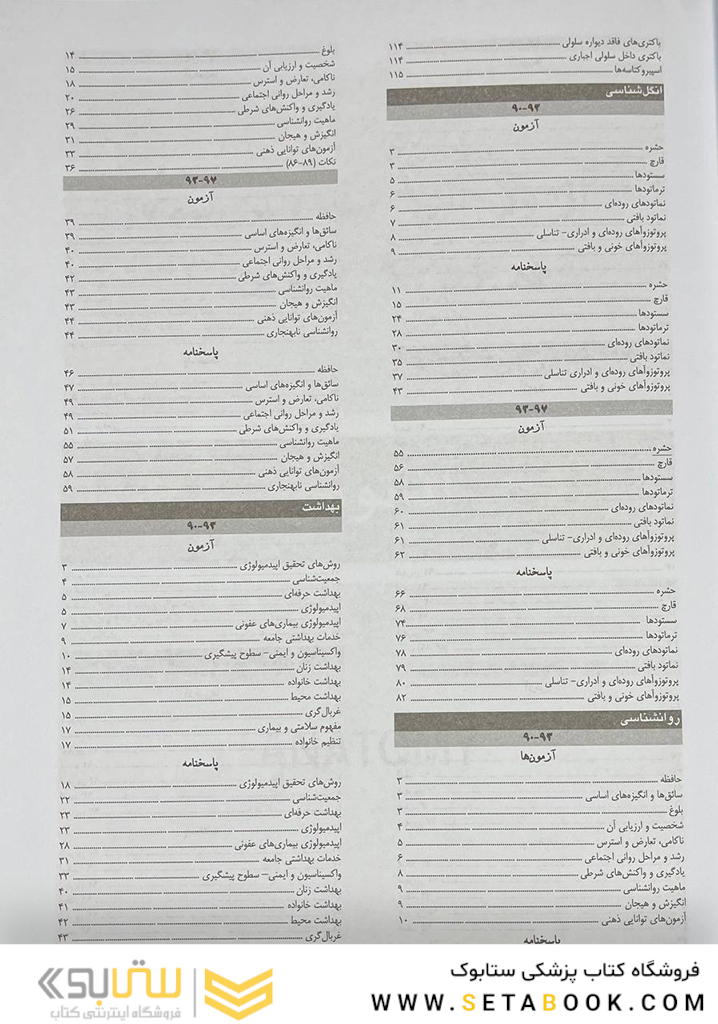 باکتری‌های فاقد دیواره سلولی ۱۱۴
باکتری داخل سلولی اجباری ۱۱۴
اسپیروکتاسه‌ها ۱۱۵
انگل‌شناسی
۹۰-۹۳
آزمون
حشره ۳
قارچ ۳
سستودها ۵
ترماتودها ۶
نماتودهای روده‌ای ۶
نماتود بافتی ۷
پروتوزوآهای روده‌ای و ادراری- تناسلی ۸
پروتوزوآهای خونی و بافتی ۹
پاسخنامه
حشره ۱۱
قارچ ۱۵
سستودها ۲۴
ترماتودها ۲۸
نماتودهای روده‌ای ۳۰
نماتود بافتی ۳۵
پروتوزوآهای روده‌ای و ادراری تناسلی ۳۷
پروتوزوآهای خونی و بافتی ۴۳
۹۳-۹۷
آزمون
حشره ۵۵
قارچ ۵۶
سستودها ۵۸
ترماتودها ۵۹
نماتودهای روده‌ای ۶۰
نماتود بافتی ۶۱
پروتوزوآهای روده‌ای و ادراری- تناسلی ۶۱
پروتوزوآهای خونی و بافتی ۶۲
پاسخنامه
حشره ۶۶
قارچ ۶۸
سستودها ۷۴
ترماتودها ۷۶
نماتودهای روده‌ای ۷۸
نماتود بافتی ۷۹
پروتوزوآهای روده‌ای و ادراری- تناسلی ۸۰
پروتوزوآهای خونی و بافتی ۸۲
روانشناسی
۹۰-۹۳
آزمون‌ها
حافظه ۳
سائق‌ها و انگیزه‌های اساسی ۳
بلوغ ۳
شخصیت و ارزیابی آن ۴
ناکامی، تعارض و استرس ۵
رشد و مراحل روانی اجتماعی ۶
یادگیری و واکنش‌های شرطی ۸
ماهیت روانشناسی ۹
انگیزش و هیجان ۹
آزمون‌های توانایی ذهنی ۱۰
پاسخنامه
بلوغ ۱۴
شخصیت و ارزیابی آن ۱۵
ناکامی، تعارض و استرس ۱۸
رشد و مراحل روانی اجتماعی ۲۰
یادگیری و واکنش‌های شرطی ۲۶
ماهیت روانشناسی ۲۹
انگیزش و هیجان ۳۱
آزمون‌های توانایی ذهنی ۳۳
نکات (۸۹-۸۶) ۳۶
۹۳-۹۷
آزمون
حافظه ۳۹
سائق‌ها و انگیزه‌های اساسی ۳۹
ناکامی، تعارض و استرس ۴۰
رشد و مراحل روانی اجتماعی ۴۰
یادگیری و واکنش‌های شرطی ۴۲
ماهیت روانشناسی ۴۳
انگیزش و هیجان ۴۳
آزمون‌های توانایی ذهنی ۴۴
روانشناسی نابهنجاری ۴۴
پاسخنامه
حافظه ۴۶
سائق‌ها و انگیزه‌های اساسی ۴۷
ناکامی، تعارض و استرس ۴۹
رشد و مراحل روانی اجتماعی ۴۹
یادگیری و واکنش‌های شرطی ۵۱
ماهیت روانشناسی ۵۵
انگیزش و هیجان ۵۷
آزمون‌های توانایی ذهنی ۵۸
روانشناسی نابهنجاری ۵۹
بهداشت
۹۰-۹۳
آزمون
روش‌های تحقیق اپیدمیولوژی ۳
جمعیت‌شناسی ۴
بهداشت حرفه‌ای ۵
اپیدمیولوژی ۵
اپیدمیولوژی بیماری‌های عفونی ۷
خدمات بهداشتی جامعه ۹
واکسیناسیون و ایمنی- سطوح پیشگیری ۱۰
بهداشت زنان ۱۴
بهداشت خانواده ۱۴
بهداشت محیط ۱۵
غربال‌گری ۱۵
مفهوم سلامتی و بیماری ۱۷
تنظیم خانواده ۱۷
پاسخنامه
روش‌های تحقیق اپیدمیولوژی ۱۸
جمعیت‌شناسی ۲۲
بهداشت حرفه‌ای ۲۳
اپیدمیولوژی ۲۳
اپیدمیولوژی بیماری‌های عفونی ۲۸
خدمات بهداشتی جامعه ۳۱
واکسیناسیون و ایمنی- سطوح پیشگیری ۳۳
بهداشت زنان ۴۰
بهداشت خانواده ۴۱
بهداشت محیط ۴۲
غربال‌گری ۴۳
فروشگاه کتاب پزشکی ستابوک
WWW.SETABOOK.COM
ستابوک
فروشگاه اینترنتی کتاب